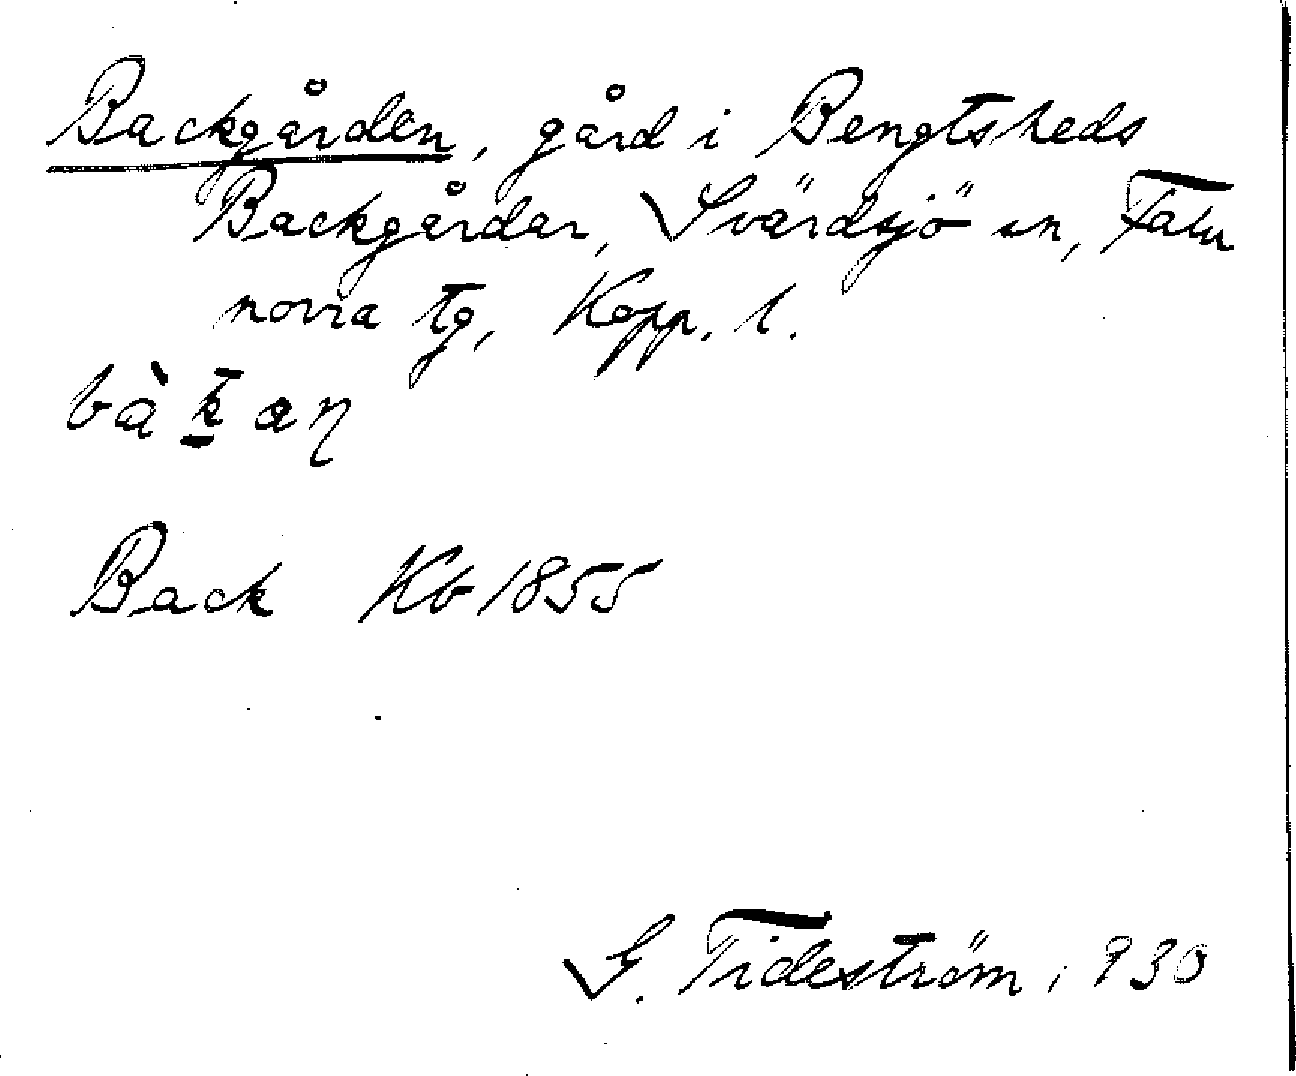 Backgården, gård i Bengtsheds
Backgårdar, Svärdsjö sn, Falu
norra tg, Kopp. l.
bàk̲aη
Back Kb 1855
G. Tideström, 930